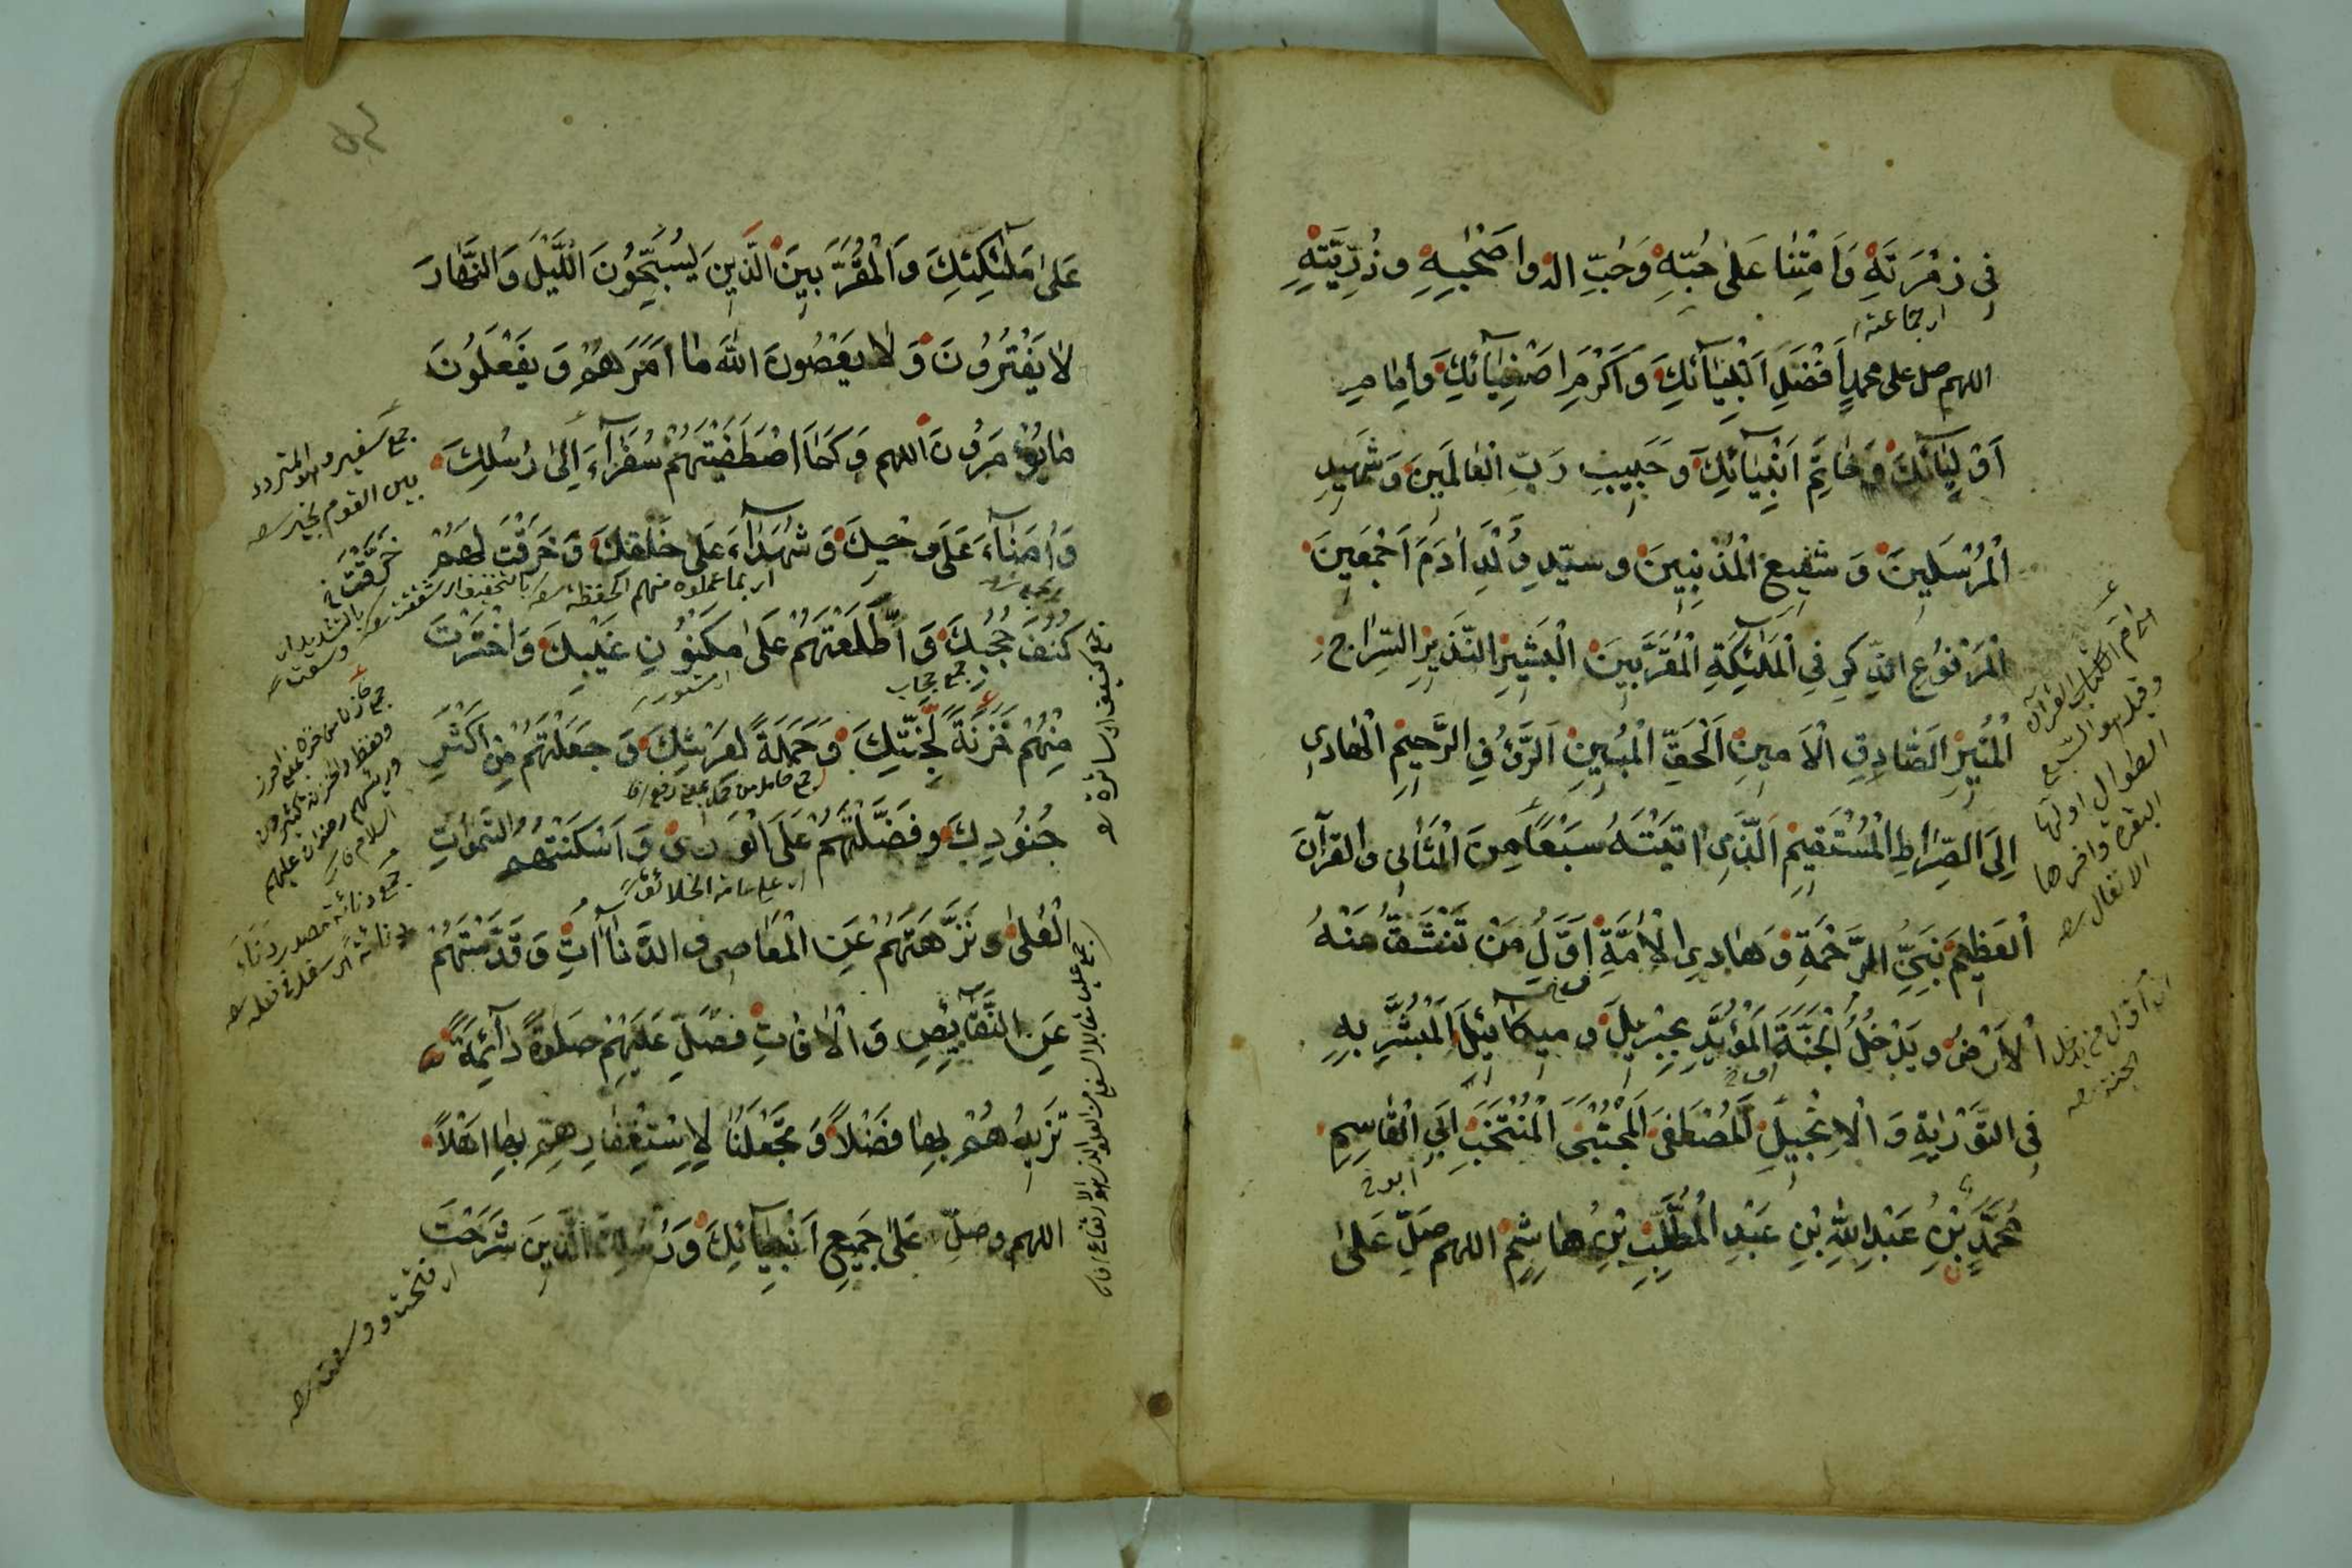 فِي زُمْرَتِهِ وَاَمِتْنَا عَلٰى حُبِّهِ وَحُبِّ اٰلِهٖ وَاَصْحٰبِهِ وَذُرِّيَّتِهِ
اى جماعته
اللهم صل على محمدٍ اَفْضَلِ اَنْبِيَآئِكَ وَاَكْرَمِ اَصْفِيَآئِكَ وَاِمَامِ
اَوْلِيَآئِكَ وَخَاتَمِ اَنْبِيَآئِكَ وَحَبِيبِ رَبِّ الْعَالَمِينَ وَشَهِيدِ
الْمُرْسَلِينَ وَشَفِيعِ الْمُذْنِبِينَ وَسَيِّدِ وُلْدِ اٰدَمَ اَجْمَعِينَ
الْمَرْفُوعِ الذِّكْرِ فِي الْمَلٰئِكَةِ الْمُقَرَّبِينَ الْبَشِيرِ النَّذِيرِ السِّرَاجِ
الْمُنِيرِ الصَّادِقِ الْاَمِينِ الْحَقِّ الْمُبِينِ الرَّؤُفِ الرَّحِيمِ الْهَادِي
اِلَى الصِّرَاطِ الْمُسْتَقِيمِ الَّذِي اٰتَيْتَهُ سَبْعًا مِنَ الْمَثَانِي وَالْقُرْآنَ
الْعَظِيمَ نَبِيِّ الرَّحْمَةِ وَهَادِي الْاُمَّةِ اَوَّلِ مَنْ تَنْشَقُّ عَنْهُ
الْاَرْضُ وَيَدْخُلُ الْجَنَّةَ الْمُؤَيَّدِ بِجِبْرِيلَ وَمِيكَائِيلَ الْمُبَشَّرِ بِهِ
فِي التَّوْرٰيةِ وَالْاِنْجِيلِ الْمُصْطَفَى الْمُجْتَبَى الْمُنْتَخَبِ اَبِي الْقَاسِمِ
ابو خ
مُحَمَّدِ بْنِ عَبْدِ اللّٰهِ بْنِ عَبْدِ الْمُطَّلِبِ بْنِ هَاشِمٍ اللهم صَلِّ عَلٰى
اى ام الكتاب القرآن
وقيل هو السبع
الطوال اولها
البقرة واخرها
الانفال
اى اول من يدخل
الجنة
عَلٰى مَلٰئِكَتِكَ وَالْمُقَرَّبِينَ الَّذِينَ يُسَبِّحُونَ اللَّيْلَ وَالنَّهَارَ
لَا يَفْتُرُونَ وَلَا يَعْصُونَ اللهَ مَا اَمَرَهُمْ وَيَفْعَلُونَ
مَا يُؤْمَرُونَ اللهم وَكَمَا اصْطَفَيْتَهُمْ سُفَرَآءَ اِلٰى رُسُلِكَ
وَاُمَنَآءَ عَلٰى وَحْيِكَ وَشُهَدَآءَ عَلٰى خَلْقِكَ وَخَرَقْتَ لَهُمْ
اى بما عملوه منهم الحفظة
كُنُفَ حُجُبِكَ وَاَطْلَعْتَهُمْ عَلٰى مَكْنُونِ غَيْبِكَ وَاخْتَرْتَ
جمع حجاب
اى مستور
مِنْهُمْ خَزَنَةً لِجَنَّتِكَ وَحَمَلَةً لِعَرْشِكَ وَجَعَلْتَهُمْ مِنْ اَكْثَرِ
جُنُودِكَ وَفَضَّلْتَهُمْ عَلَى الْوَرٰى وَاَسْكَنْتَهُمُ السَّمٰوَاتِ
اى على عامة الخلائق
الْعُلٰى وَنَزَّهْتَهُمْ عَنِ الْمَعَاصِي وَالدَّنَاآتِ وَقَدَّسْتَهُمْ
عَنِ النَّقَآئِصِ وَالْاٰفَاتِ فَصَلِّ عَلَيْهِمْ صَلٰوةً دَآئِمَةً
تَزِيدُهُمْ بِهَا فَضْلًا وَتَجْعَلُنَا لِاسْتِغْفَارِهِمْ بِهَا اَهْلًا
اللهم وصلِّ عَلٰى جَمِيعِ اَنْبِيَآئِكَ وَرُسُلِكَ الَّذِينَ شَرَحْتَ
جمع سفير وهو المتردد
بين القوم بخير
خَرَّقْتَ خ
بالتشديد اى
وسعت
جمع دنائة مصدر
اى فتحت ووسعت